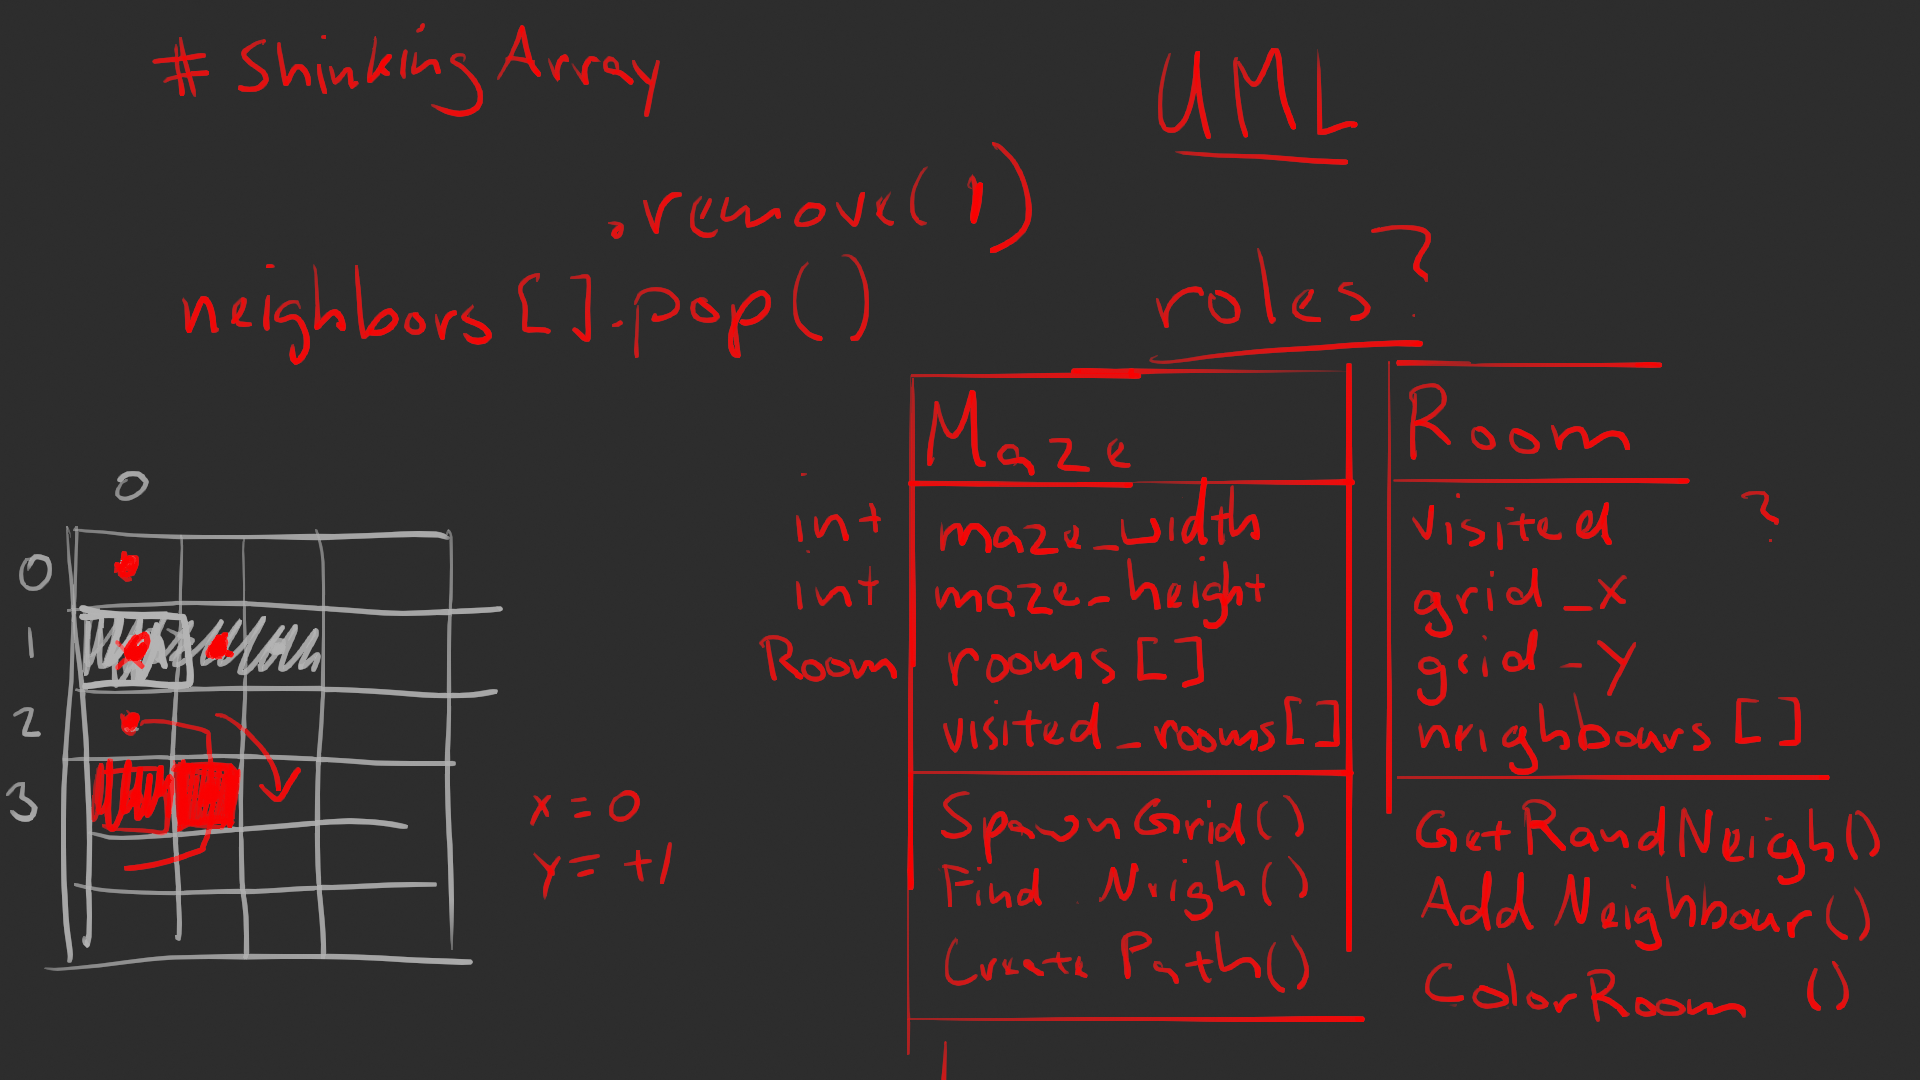 # ShinkingArray
UML
.remove(1)
neighbors[].pop()
roles?
Maze
int maze_width
int maze_height
Room rooms[]
visited_rooms[]
SpawnGrid()
Find Neigh()
Create Path()
Room
visited ?
grid_x
grid_y
neighbours[]
GetRandNeigh()
AddNeighbour()
ColorRoom ()
0
0
1
2
3
x = 0
y = +1